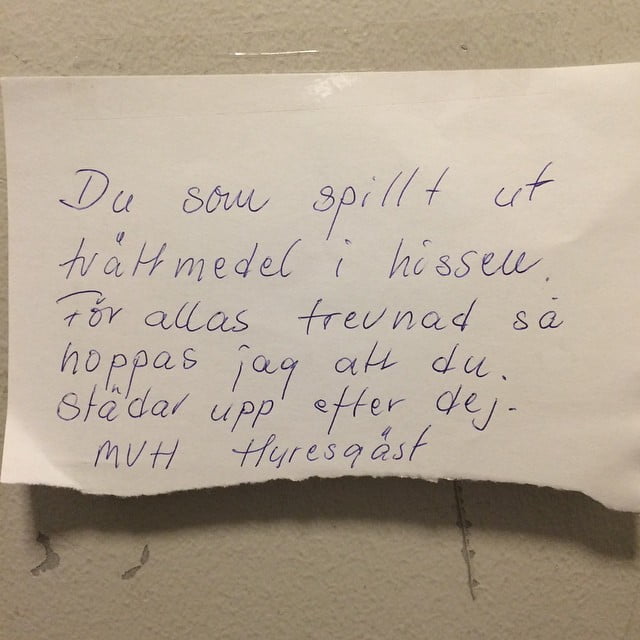 Du som spillt ut
tvättmedel i hissen.
För allas trevnad så
hoppas jag att du.
städar upp efter dej.
MVH Hyresgäst